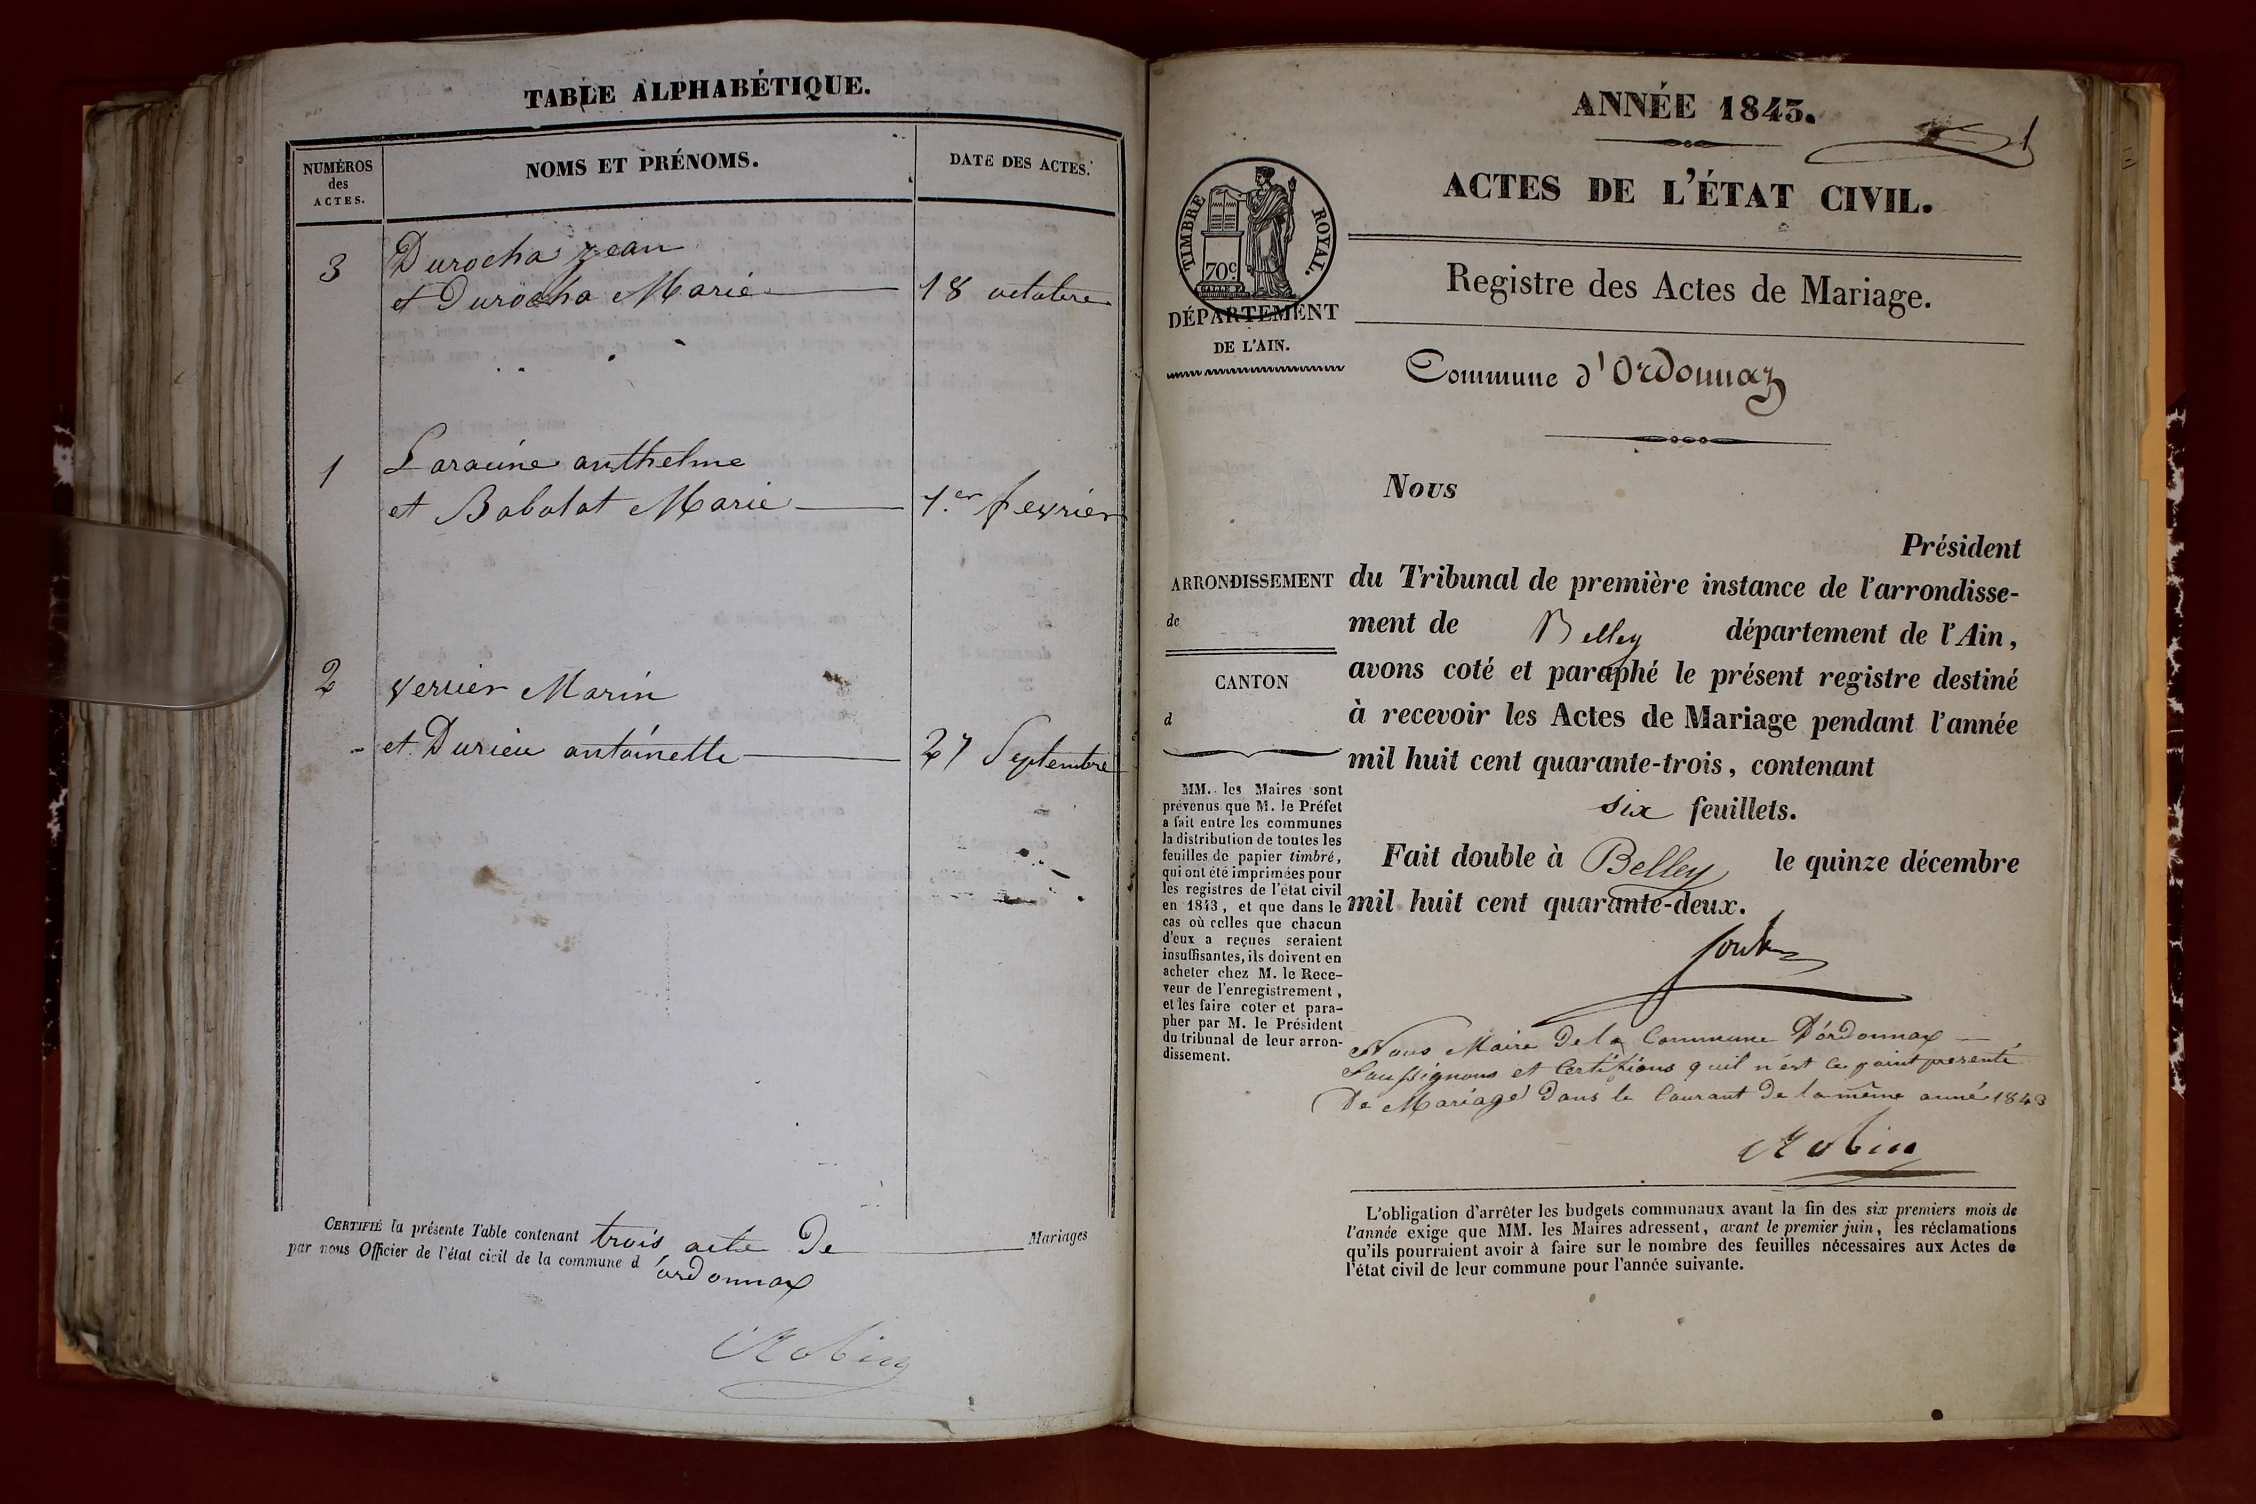 TABLE ALPHABÉTIQUE.
NUMÉROS
des
ACTES.
NOMS ET PRÉNOMS.
DATE DES ACTES.
3
Durocha jean
et Durocha Marie
18 octobre
1
Laracine anthelme
et Babolat Marie
1.er fevrier
2
verrier Marin
et Durieu antoinette
27 Septembre
CERTIFIÉ la présente Table contenant trois acte De Mariages
par nous Officier de l'état civil de la commune d'ordonnax
Robin
ANNÉE 1843.
1
ACTES DE L'ÉTAT CIVIL.
TIMBRE ROYAL.
70c.
DÉPARTEMENT
DE L'AIN.
Registre des Actes de Mariage.
Commune d'Ordonnaz
Nous
Président
ARRONDISSEMENT
de
CANTON
d
du Tribunal de première instance de l'arrondisse-
ment de Belley département de l'Ain,
avons coté et paraphé le présent registre destiné
à recevoir les Actes de Mariage pendant l'année
mil huit cent quarante-trois, contenant
six feuillets.
Fait double à Belley le quinze décembre
mil huit cent quarante-deux.
MM. les Maires sont
prévenus que M. le Préfet
a fait entre les communes
la distribution de toutes les
feuilles de papier timbré,
qui ont été imprimées pour
les registres de l'état civil
en 1843, et que dans le
cas où celles que chacun
d'eux a reçues seraient
insuffisantes, ils doivent en
acheter chez M. le Rece-
veur de l'enregistrement,
et les faire coter et para-
pher par M. le Président
du tribunal de leur arron-
dissement.
Nous Maire De la Commune D'ordonnax
Soussignons et Certifions quil n'est ce point presenté
De Mariage Dans le Courant De la même anné 1843
Robin
L'obligation d'arrêter les budgets communaux avant la fin des six premiers mois de
l'année exige que MM. les Maires adressent, avant le premier juin, les réclamations
qu'ils pourraient avoir à faire sur le nombre des feuilles nécessaires aux Actes de
l'état civil de leur commune pour l'année suivante.